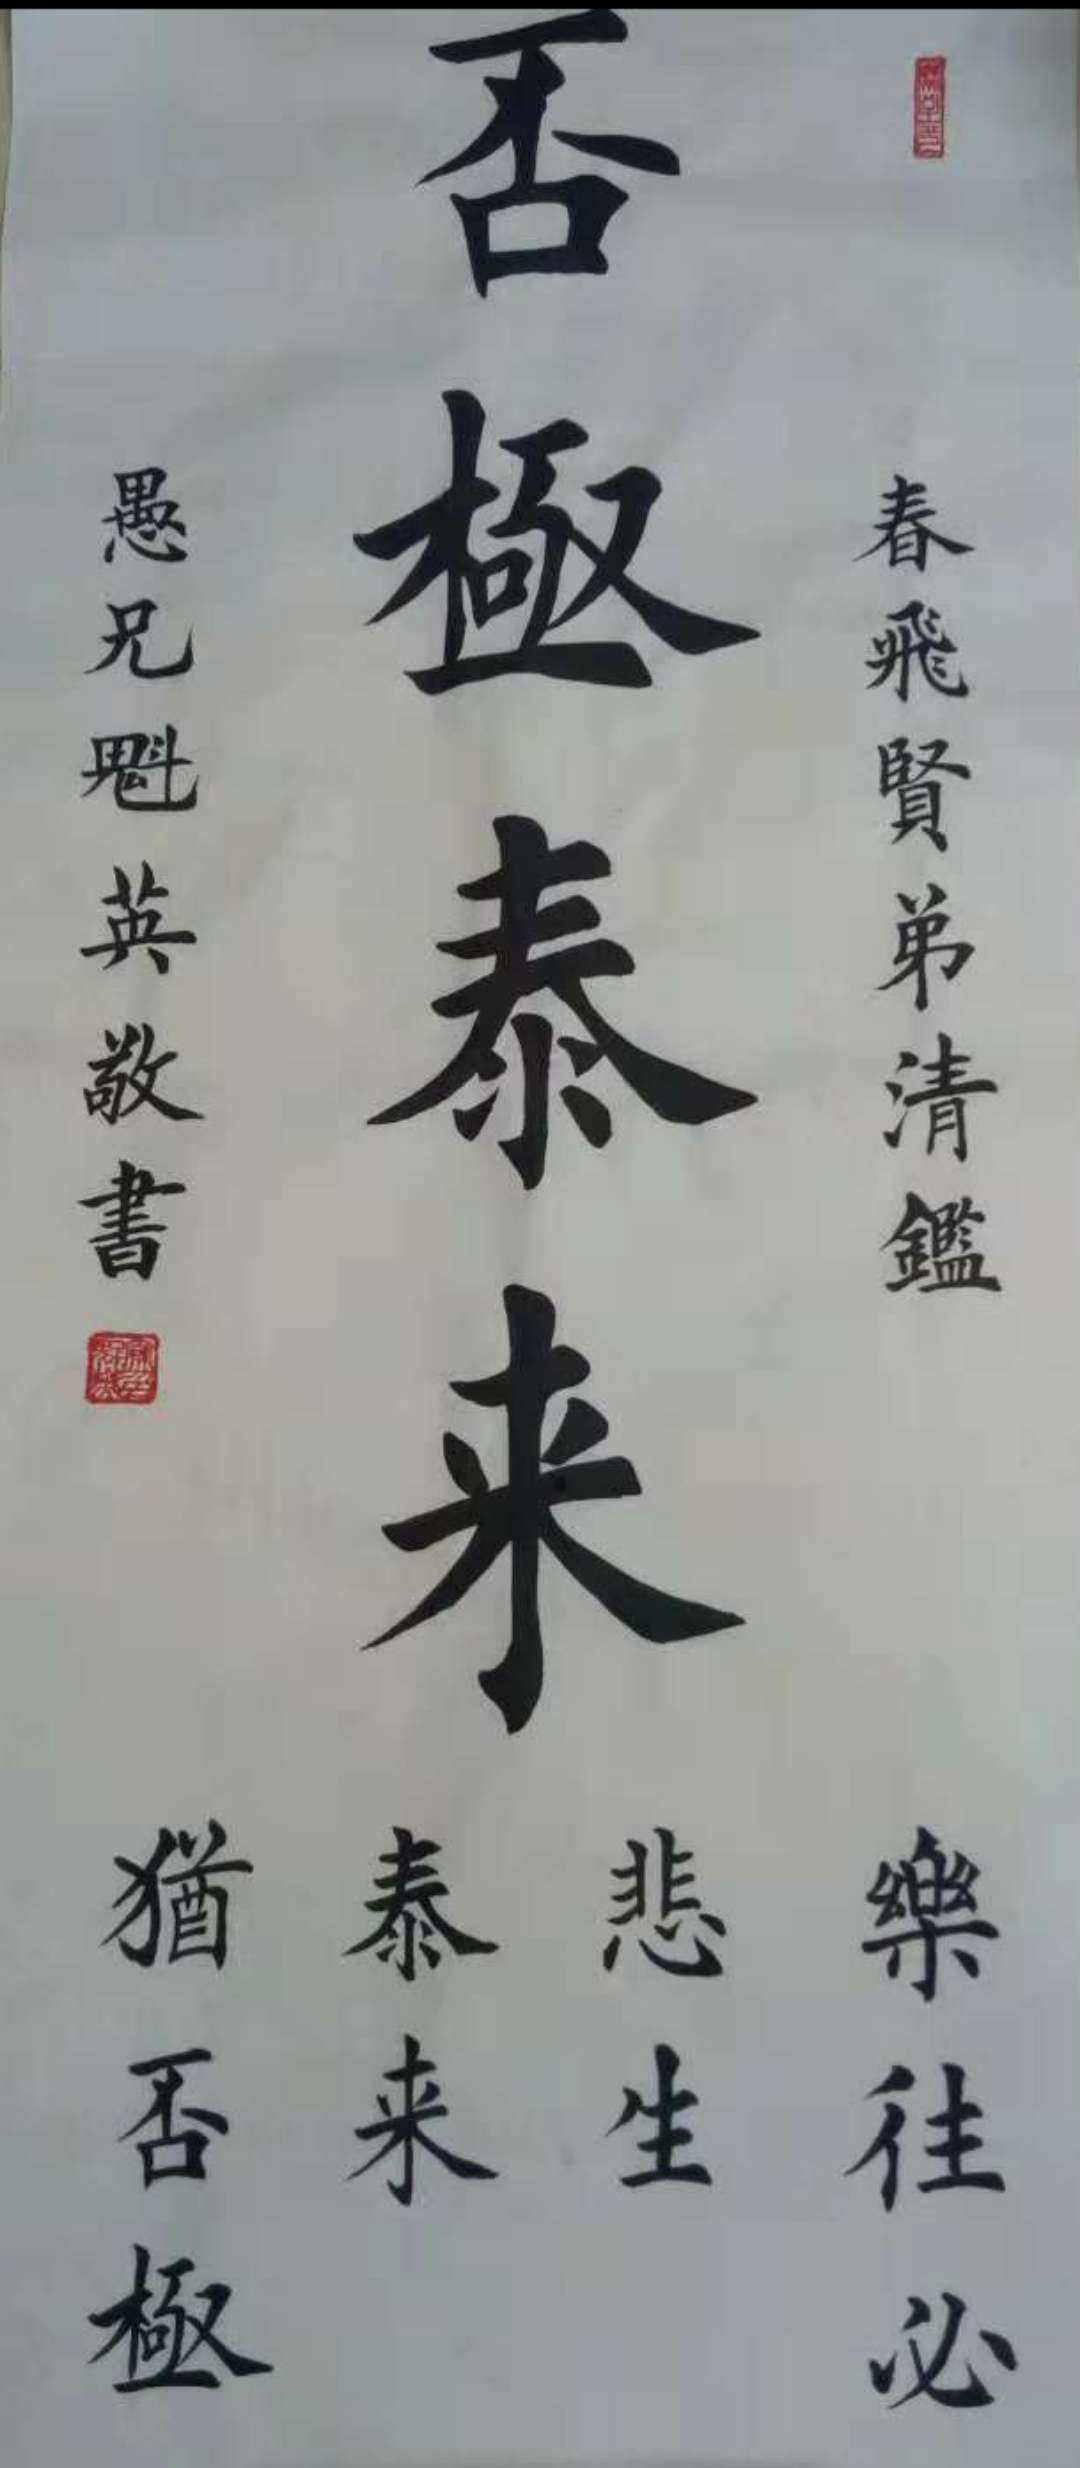 春飛賢弟清鑑
否極泰来
愚兄魁英敬書
樂往必
悲生
泰来
猶否極